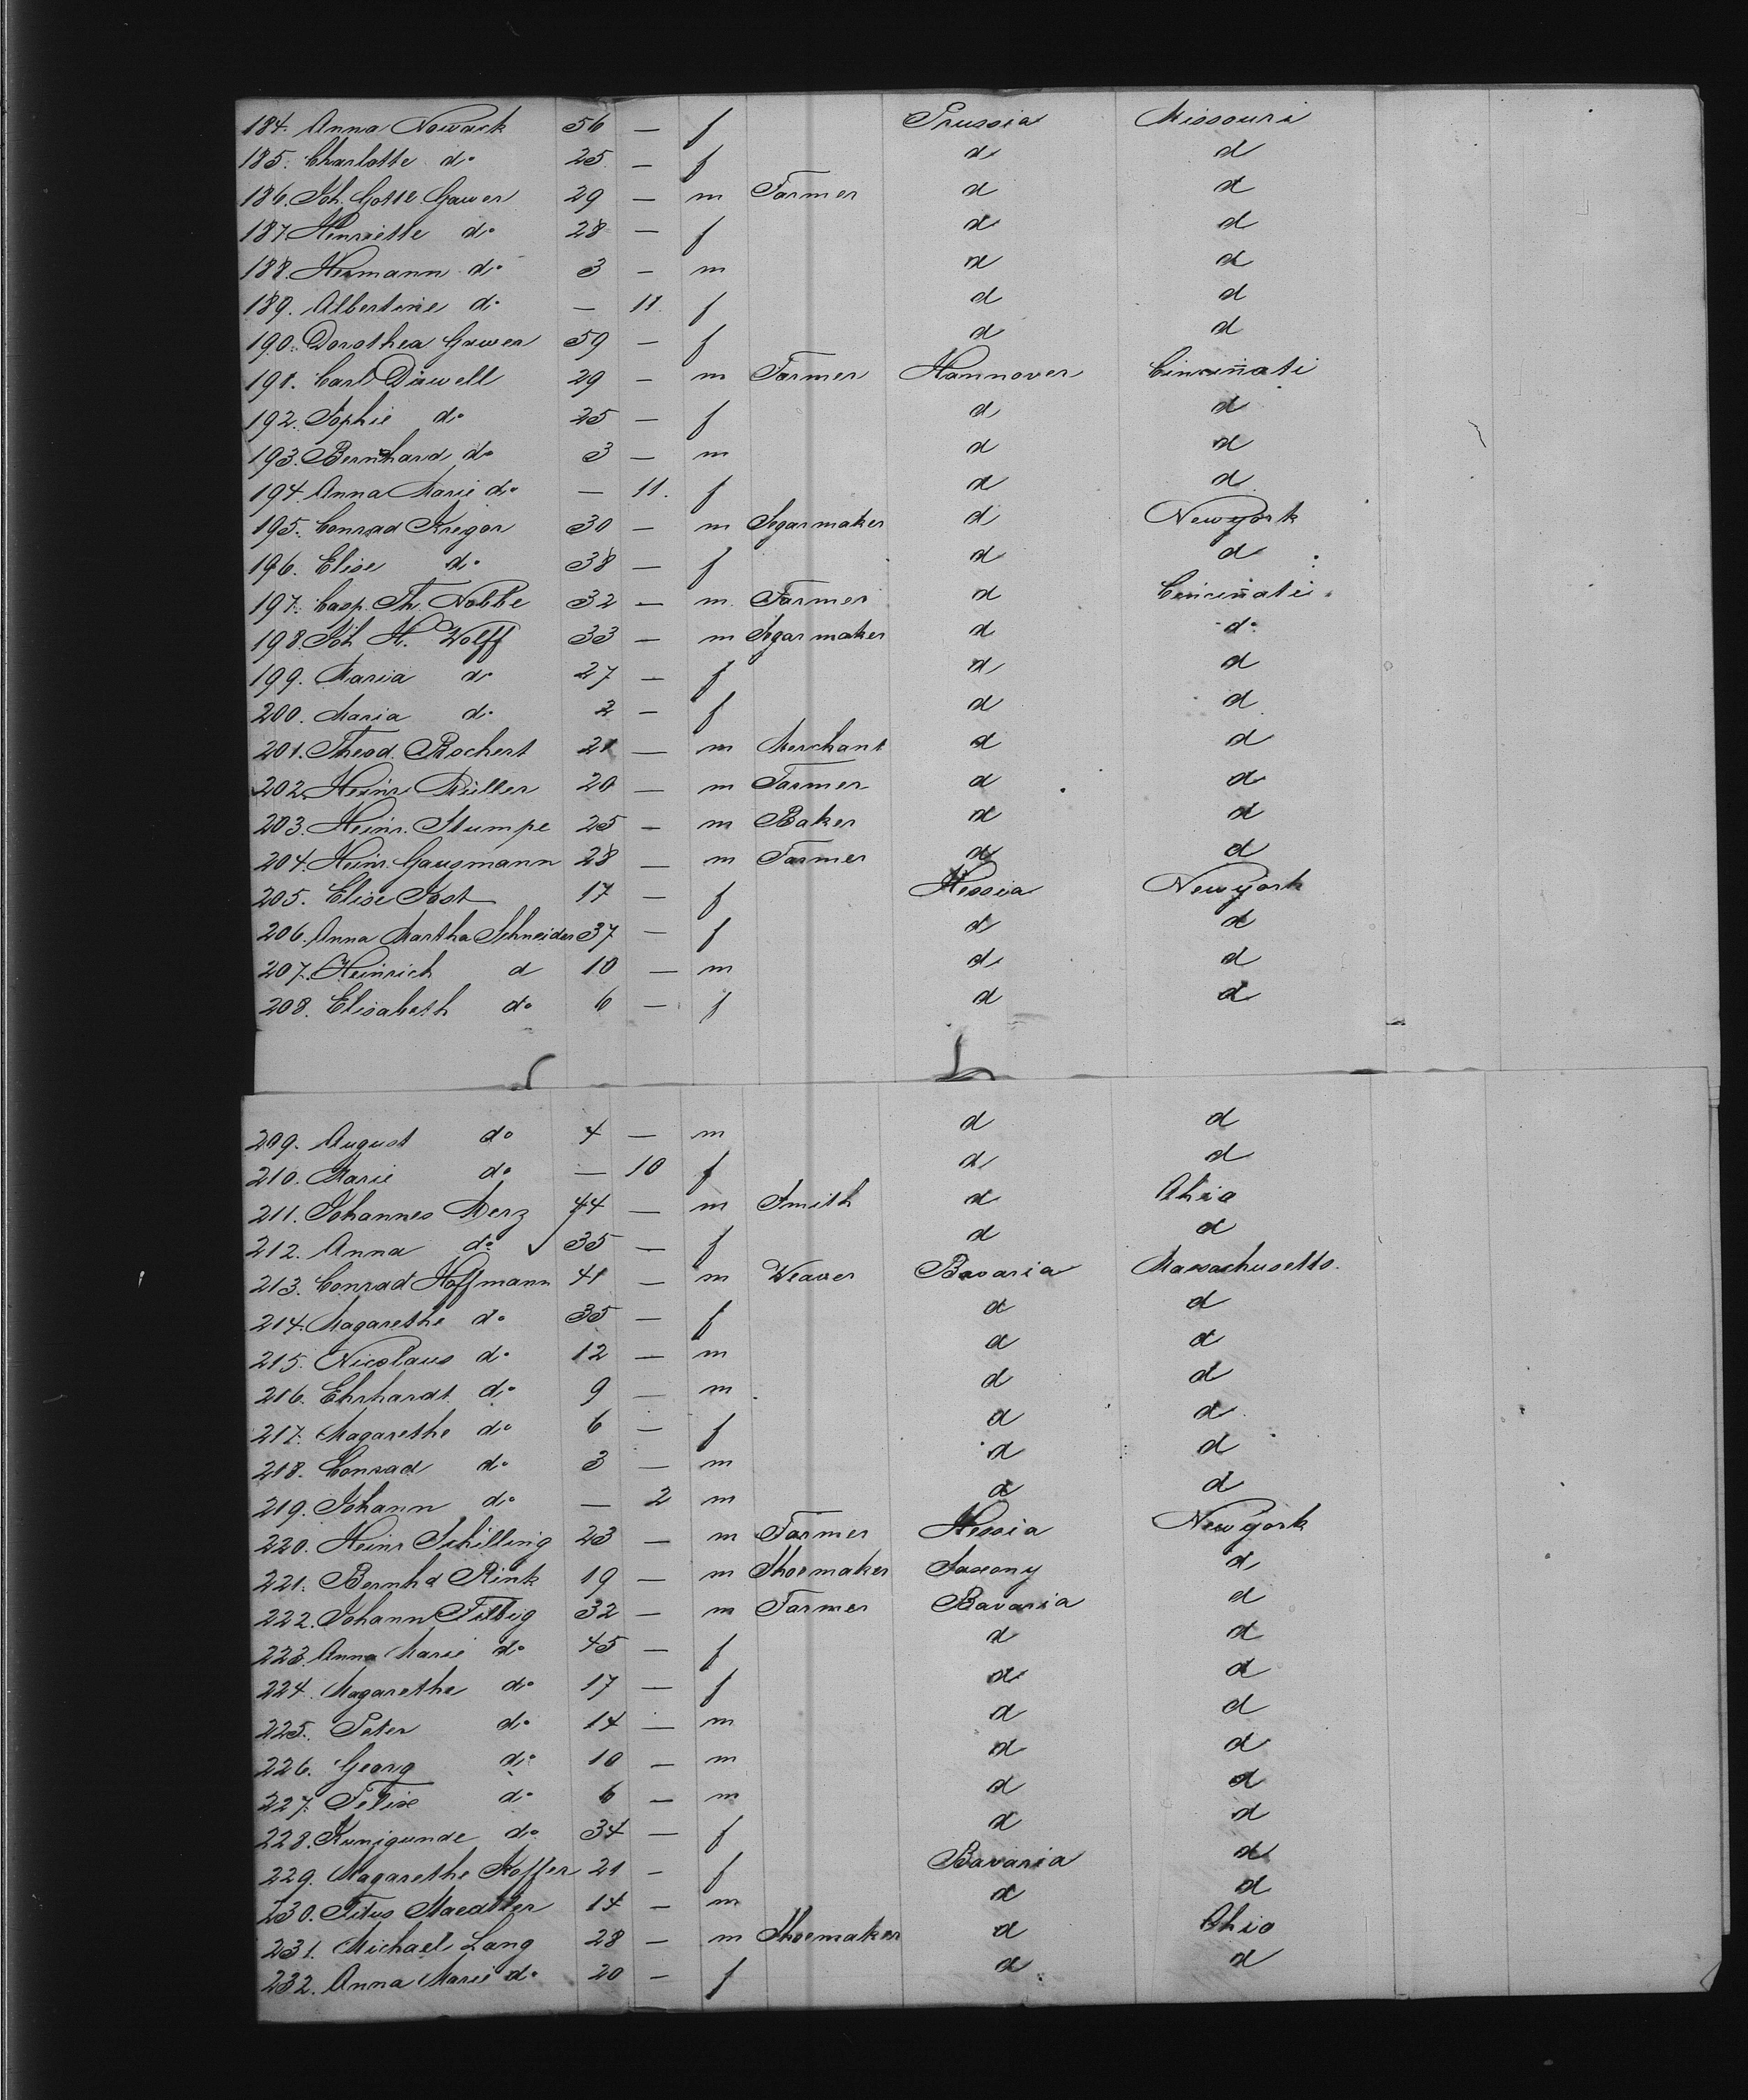 184. Anna Nowack 56 — f Prussia Missouri
185. Charlotte do 25 — f d d
186. Joh. Gottl. Gawer 29 — m Farmer d d
187 Henriette do 28 — f d d
188. Hermann do 3 — m d d
189. Albertine do — 11. f d d
190. Dorothea Gawer 59 — f d d
191. Carl Düwell 29 — m Farmer Hannover Cincin̄ati
192. Sophie do 25 — f d d
193. Bernhard do 3 — m d d
194. Anna Marie do — 11. f d d
195. Conrad Kregor 30 — m Segarmaker d Newyork
196. Elise do 38 — f d d
197. Casp. Th. Nobbe 32 — m Farmer d Cincin̄ati
198. Joh H. Wolff 33 — m Segarmaker d do
199. Maria do 27 — f d d
200. Maria do 2 — f d d
201. Theod. Rochert 21 — m Merchant d d
202. Heinr Müller 20 — m Farmer d d
203. Heinr. Stumpe 25 — m Baker d d
204. Heinr Gausmann 28 — m Farmer d d
205. Elise Jost 17 — f Hessia Newyork
206. Anna Martha Schneider 37 — f d d
207. Heinrich d 10 — m d d
208. Elisabeth do 6 — f d d
209. August do 4 — m d d
210. Marie do — 10 f d d
211. Johannes Merz 44 — m Smith d Ohio
212. Anna do 35 — f d d
213. Conrad Hoffmann 41 — m Weaver Bavaria Massachusetts.
214. Magarethe do 35 — f d d
215. Nicolaus do 12 — m d d
216. Ehrhardt do 9 — m d d
217. Magarethe do 6 — f d d
218. Conrad do 3 — m d d
219. Johann do — 2 m d d
220. Heinr Schilling 23 — m Farmer Hessia Newyork
221. Bernhd Rink 19 — m Shoemaker Saxony d
222. Johann Filbig 32 — m Farmer Bavaria d
223. Anna Marie do 45 — f d d
224. Magarethe do 17 — f d d
225. Peter do 14 — m d d
226. Georg do 10 — m d d
227. Felix do 6 — m d d
228. Kunigunde do 34 — f d d
229. Magarethe Koffer 21 — f Bavaria d
230. Titus Maedtler 14 — m d d
231. Michael Lang 28 — m Shoemaker d Ohio
232. Anna Marie do 20 — f d d